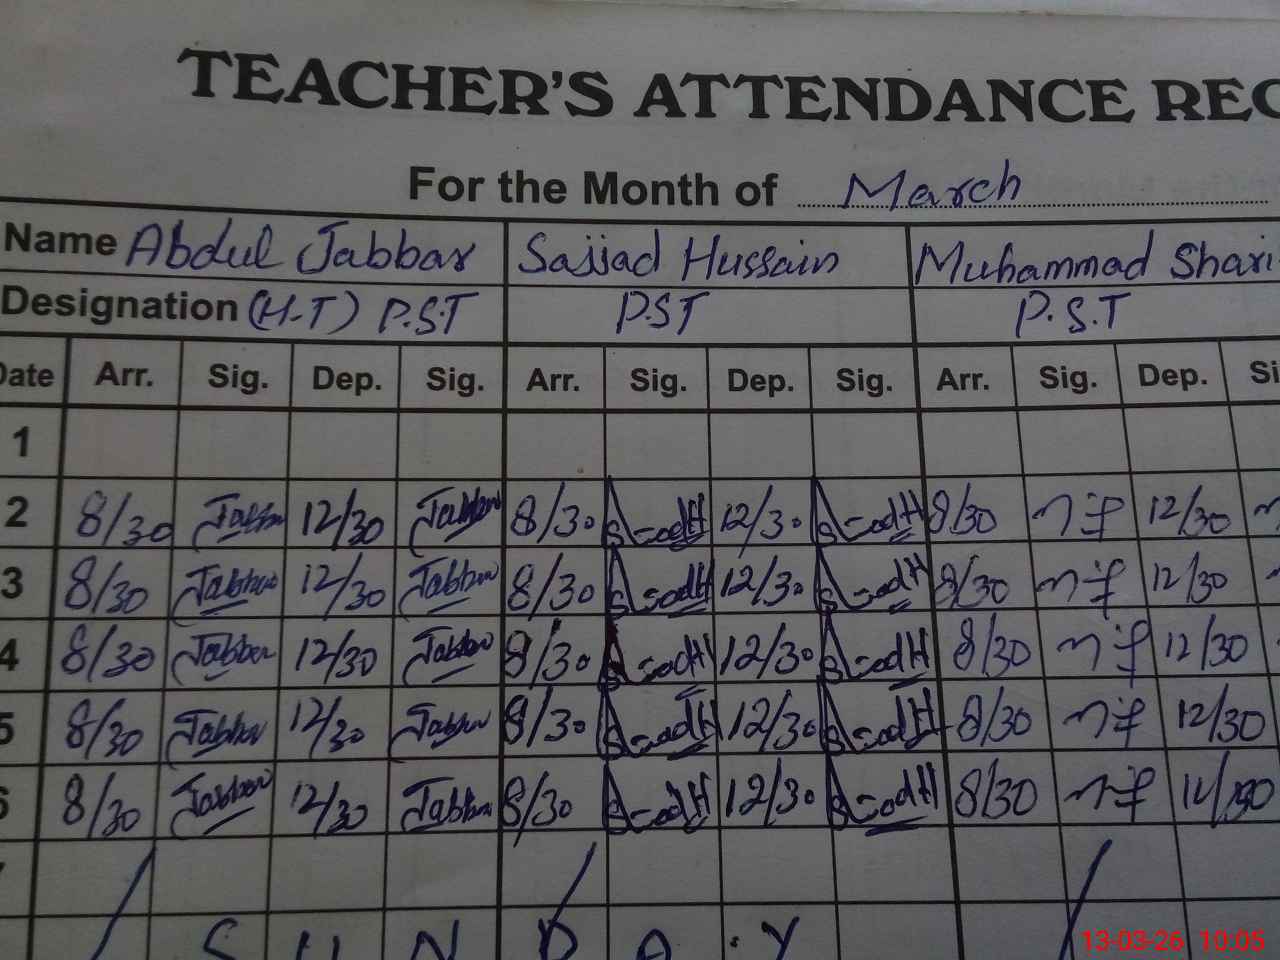 TEACHER'S ATTENDANCE REC
For the Month of March
Name Abdul Jabbar Sajjad Hussain Muhammad Shari
Designation (H-T) P.S.T P.S.T P.S.T
Date Arr. Sig. Dep. Sig. Arr. Sig. Dep. Sig. Arr. Sig. Dep. Si
1
2 8/30 Jabbar 12/30 Jabbar 8/30 12/30 8/30 12/30
3 8/30 Jabbar 12/30 Jabbar 8/30 12/30 8/30 12/30
4 8/30 Jabbar 12/30 Jabbar 8/30 12/30 8/30 12/30
5 8/30 Jabbar 12/30 Jabbar 8/30 12/30 8/30 12/30
6 8/30 Jabbar 12/30 Jabbar 8/30 12/30 8/30
7
SUNDAY
13-03-26 10:05